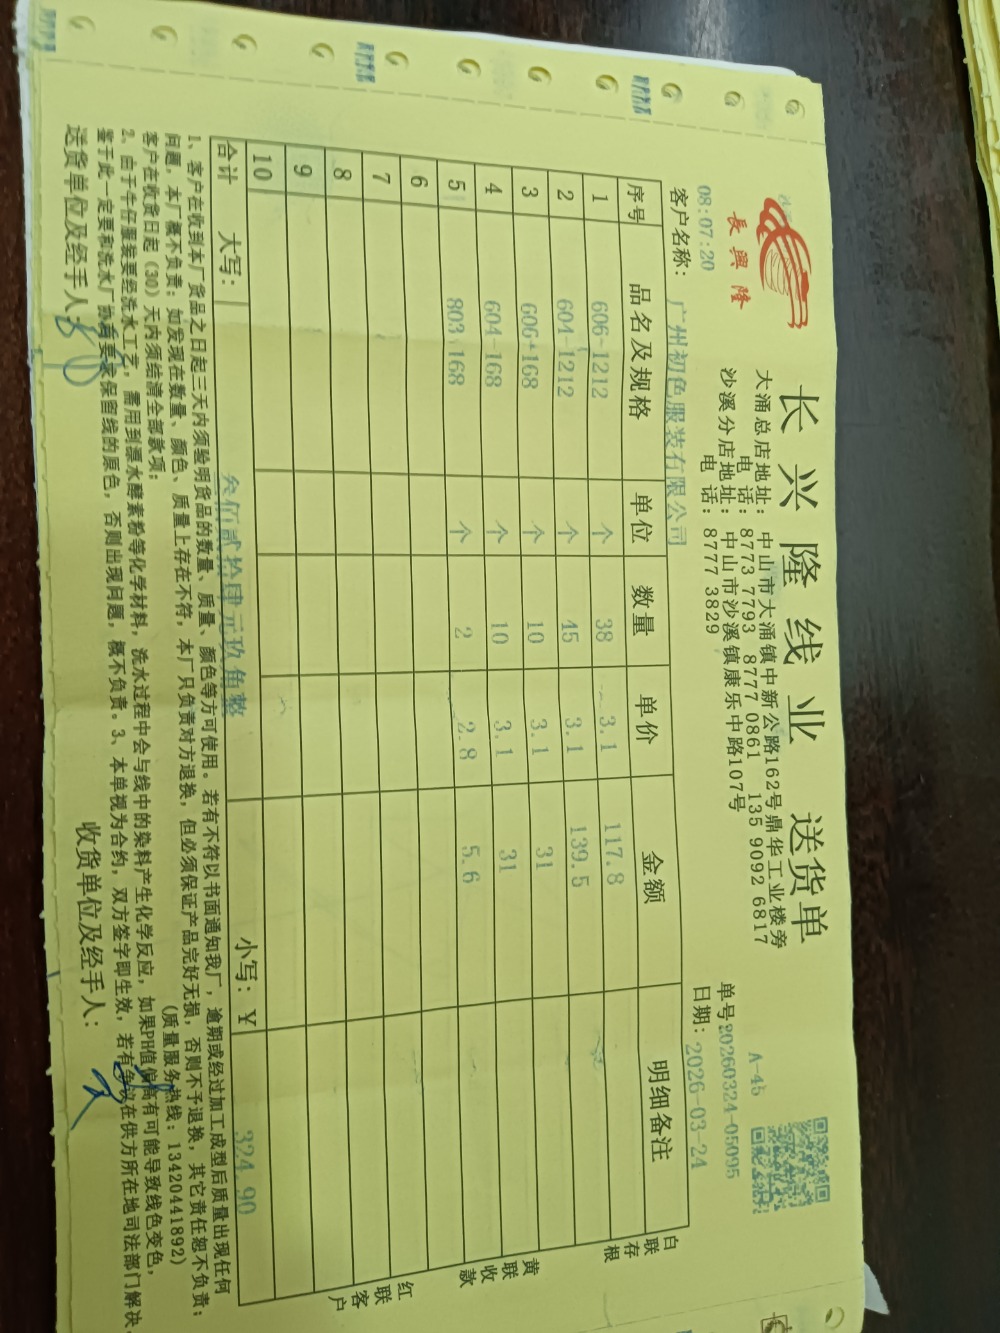 長興隆
长兴隆线业 送货单
A-45
大涌总店地址：中山市大涌镇中新公路162号鼎华工业楼旁
电 话：8773 7793 8777 0861 135 9092 6817
沙溪分店地址：中山市沙溪镇康乐中路107号
电 话：8777 3829
单号20260324-05095
08:07:20
日期：2026-03-24
客户名称：广州初色服装有限公司
序号 品名及规格 单位 数量 单价 金额 明细备注
1 606-1212 个 38 3.1 117.8
2 604-1212 个 45 3.1 139.5
3 606-168 个 10 3.1 31
4 604-168 个 10 3.1 31
5 803-168 个 2 2.8 5.6
6
7
8
9
10
合计 大写：叁佰贰拾肆元玖角整 小写：￥ 324.90
白联存根
黄联收款
红联客户
1、客户在收到本厂货品之日起三天内须验明货品的数量、质量、颜色等方可使用。若有不符以书面通知我厂，逾期或经过加工成型后质量出现任何
问题，本厂概不负责；如发现在数量、颜色、质量上存在不符，本厂只负责对方退换，但必须保证产品完好无损，否则不予退换，其它责任恕不负责；
客户在收货日起（30）天内须结清全部款项； （质量服务热线：13420441892）
2、由于牛仔服装要经洗水工艺，需用到漂水酵素粉等化学材料，洗水过程中会与线中的染料产生化学反应，如果PH值偏高有可能导致线色变色，
鉴于此一定要和洗水厂协商要求保留线的原色，否则出现问题，概不负责。3、本单视为合约，双方签字即生效，若有争议在供方所在地司法部门解决。
送货单位及经手人： 收货单位及经手人：